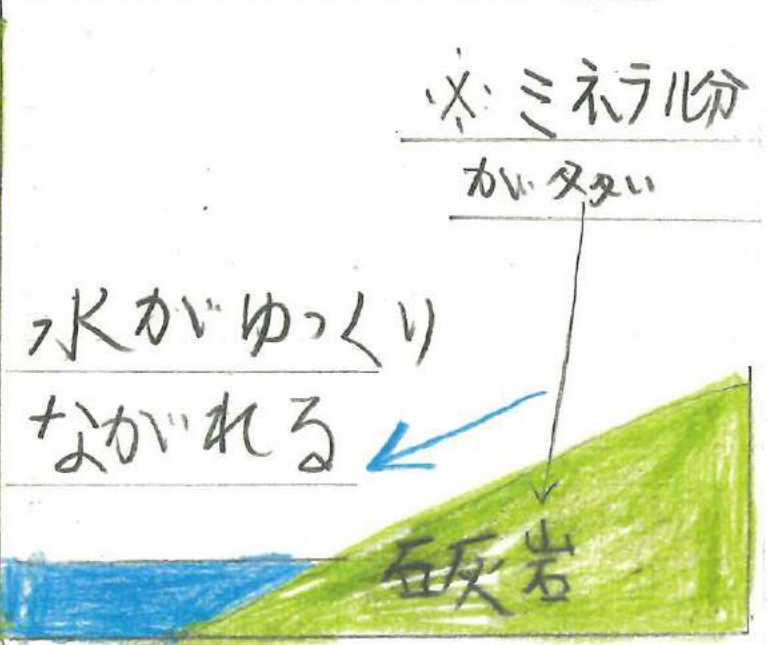 ※ミネラル分
が多い
水がゆっくり
ながれる
石灰岩